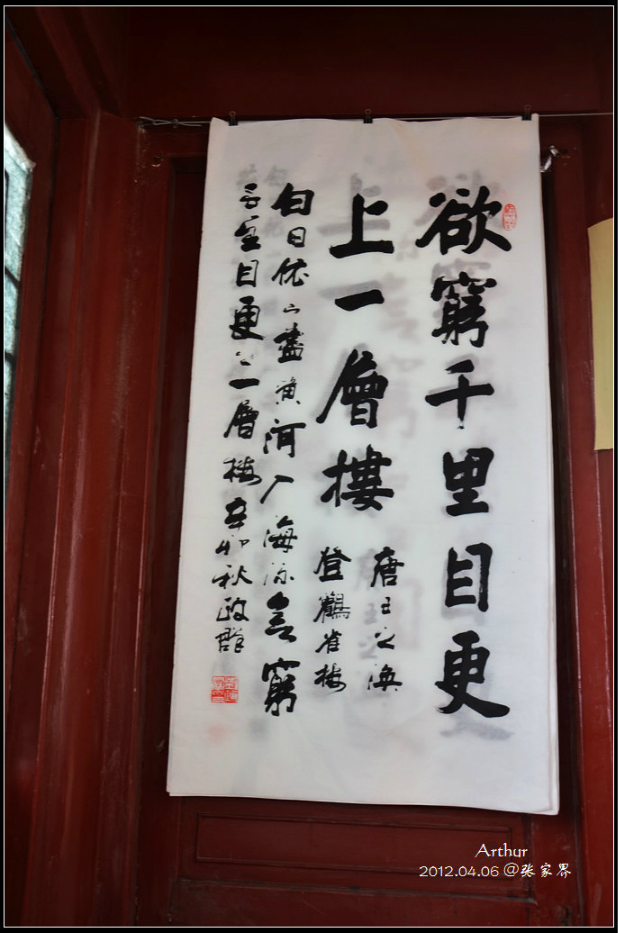 欲窮千里目更
上一層樓
唐王之渙
登鶴雀楼
白日依山盡黄河入海流欲窮
千里目更上一層楼辛卯秋政群
Arthur
2012.04.06 @张家界